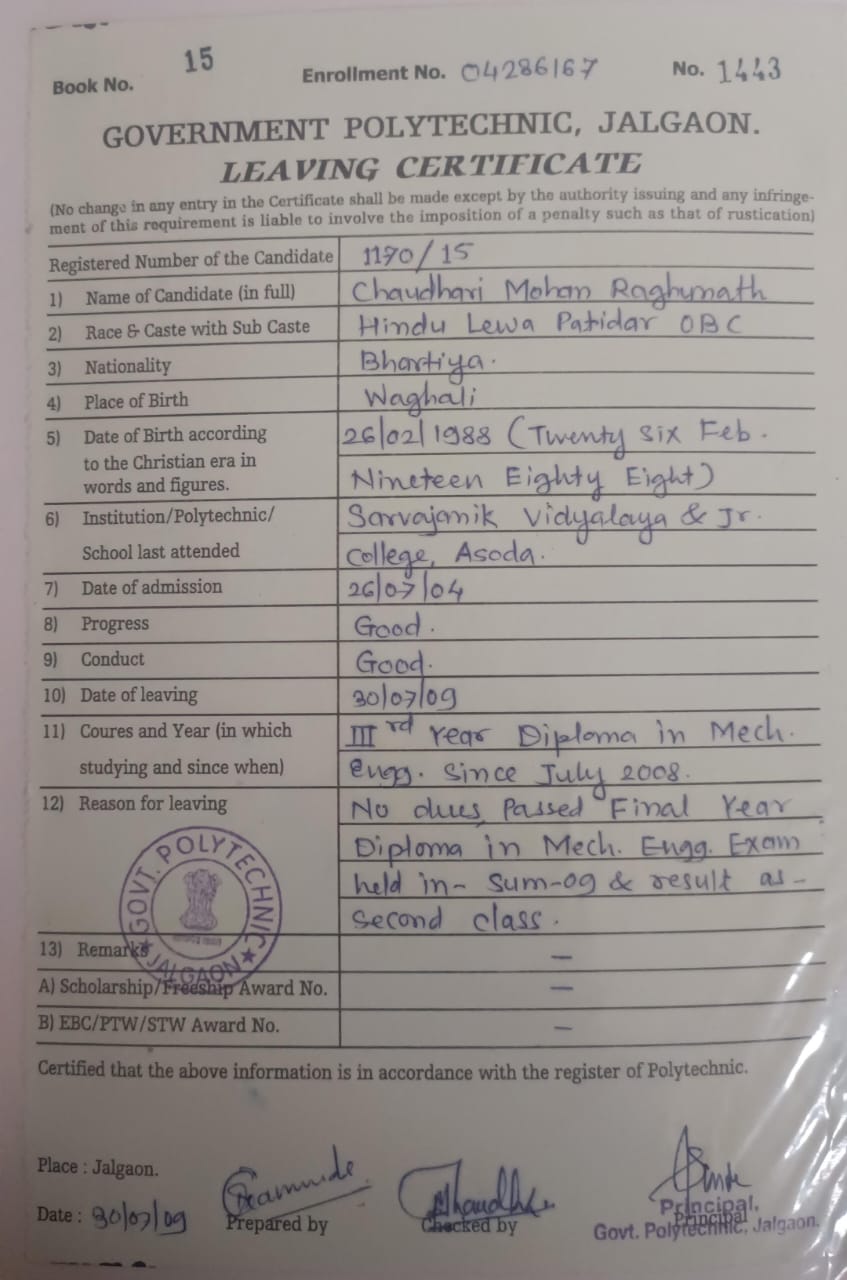 Book No. 15 Enrollment No. 04286167 No. 1443
GOVERNMENT POLYTECHNIC, JALGAON.
LEAVING CERTIFICATE
(No change in any entry in the Certificate shall be made except by the authority issuing and any infringe-
ment of this requirement is liable to involve the imposition of a penalty such as that of rustication)
Registered Number of the Candidate 1170/15
1) Name of Candidate (in full) Chaudhari Mohan Raghunath
2) Race & Caste with Sub Caste Hindu Lewa Patidar OBC
3) Nationality Bhartiya.
4) Place of Birth Waghali
5) Date of Birth according 26/02/1988 (Twenty Six Feb.
to the Christian era in
words and figures. Nineteen Eighty Eight)
6) Institution/Polytechnic/ Sarvajanik Vidyalaya & Jr.
School last attended College, Asoda.
7) Date of admission 26/07/04
8) Progress Good.
9) Conduct Good.
10) Date of leaving 30/07/09
11) Coures and Year (in which IIIrd Year Diploma in Mech.
studying and since when) Engg. Since July 2008.
12) Reason for leaving No dues, Passed Final Year
Diploma in Mech. Engg. Exam
held in- Sum-09 & result as-
Second class.
GOVT. POLYTECHNIC
★ JALGAON ★
13) Remarks —
A) Scholarship/Freeship Award No. —
B) EBC/PTW/STW Award No. —
Certified that the above information is in accordance with the register of Polytechnic.
Place : Jalgaon.
Date : 30/07/09 Prepared by Checked by Principal
Principal,
Govt. Polytechnic, Jalgaon.